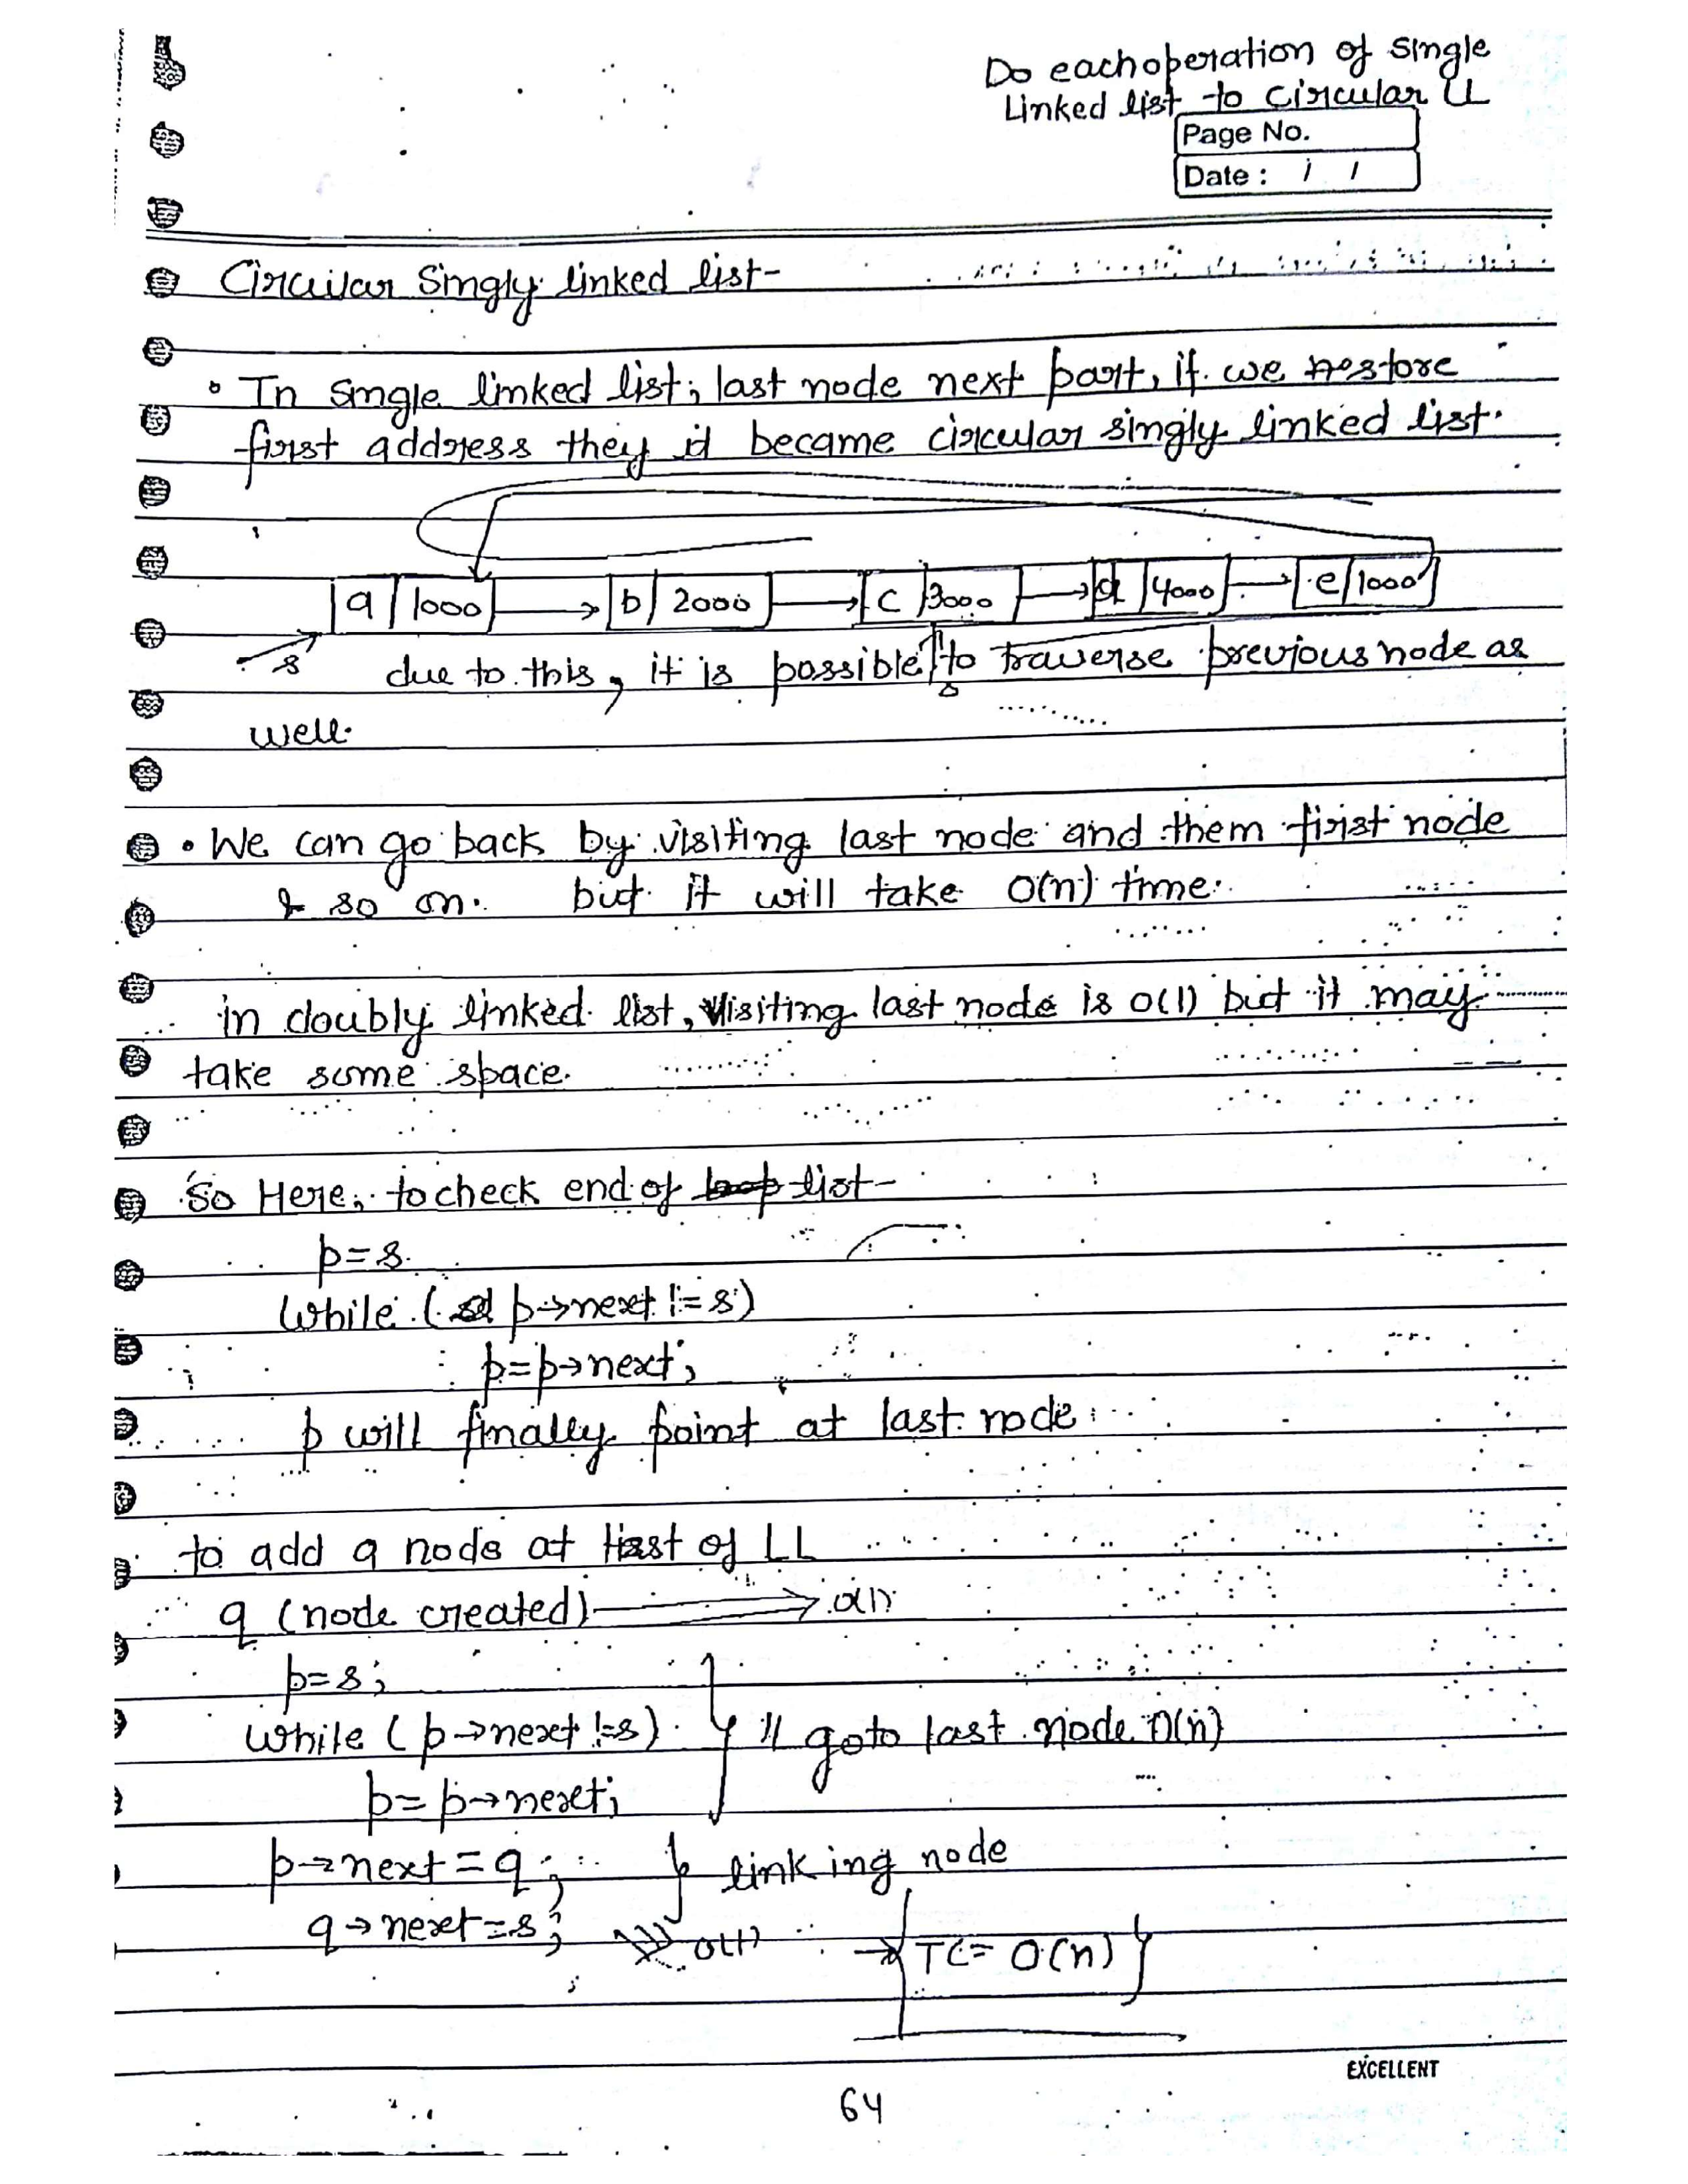 Do each operation of single
Linked list to Circular LL
Page No.
Date : / /
Circuilar Singly linked list-
• In single linked list, last node next part, if we restore
first address they it became circular singly linked list.
a 1000 b 2000 c 3000 d 4000 e 1000
s due to this, it is possible to traverse previous node as
well.
• We can go back by visiting last node and them first node
& so on. but it will take O(n) time.
in doubly linked list, visiting last node is O(1) but it may
take some space.
So Here, to check end of loop list-
p=s.
While ( p→next != s)
p=p→next;
p will finally point at last node
to add a node at last of LL
q (node created) → O(1)
p=s;
while (p→next !=s) } // goto last node O(n)
p= p→next;
p→next = q; } linking node
q→next=s; O(1) → TC= O(n)
EXCELLENT
64